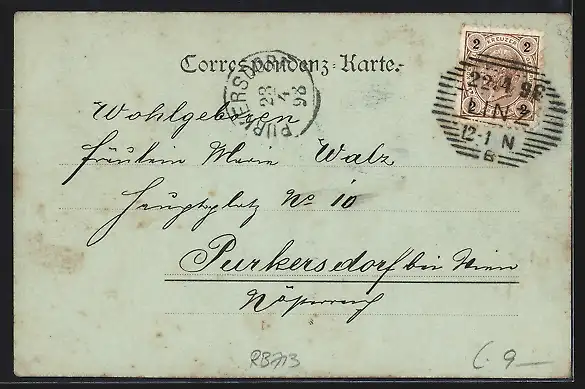 Correspondenz-Karte.
2 KREUZER 2
22.4.98
12-1 N
B
2 2
PURKERSDORF
23
4
98
Wohlgeboren
Fräulein Marie Walz
Hauptplatz No 10
Purkersdorf bei Wien
N.Österreich
RB713
9-